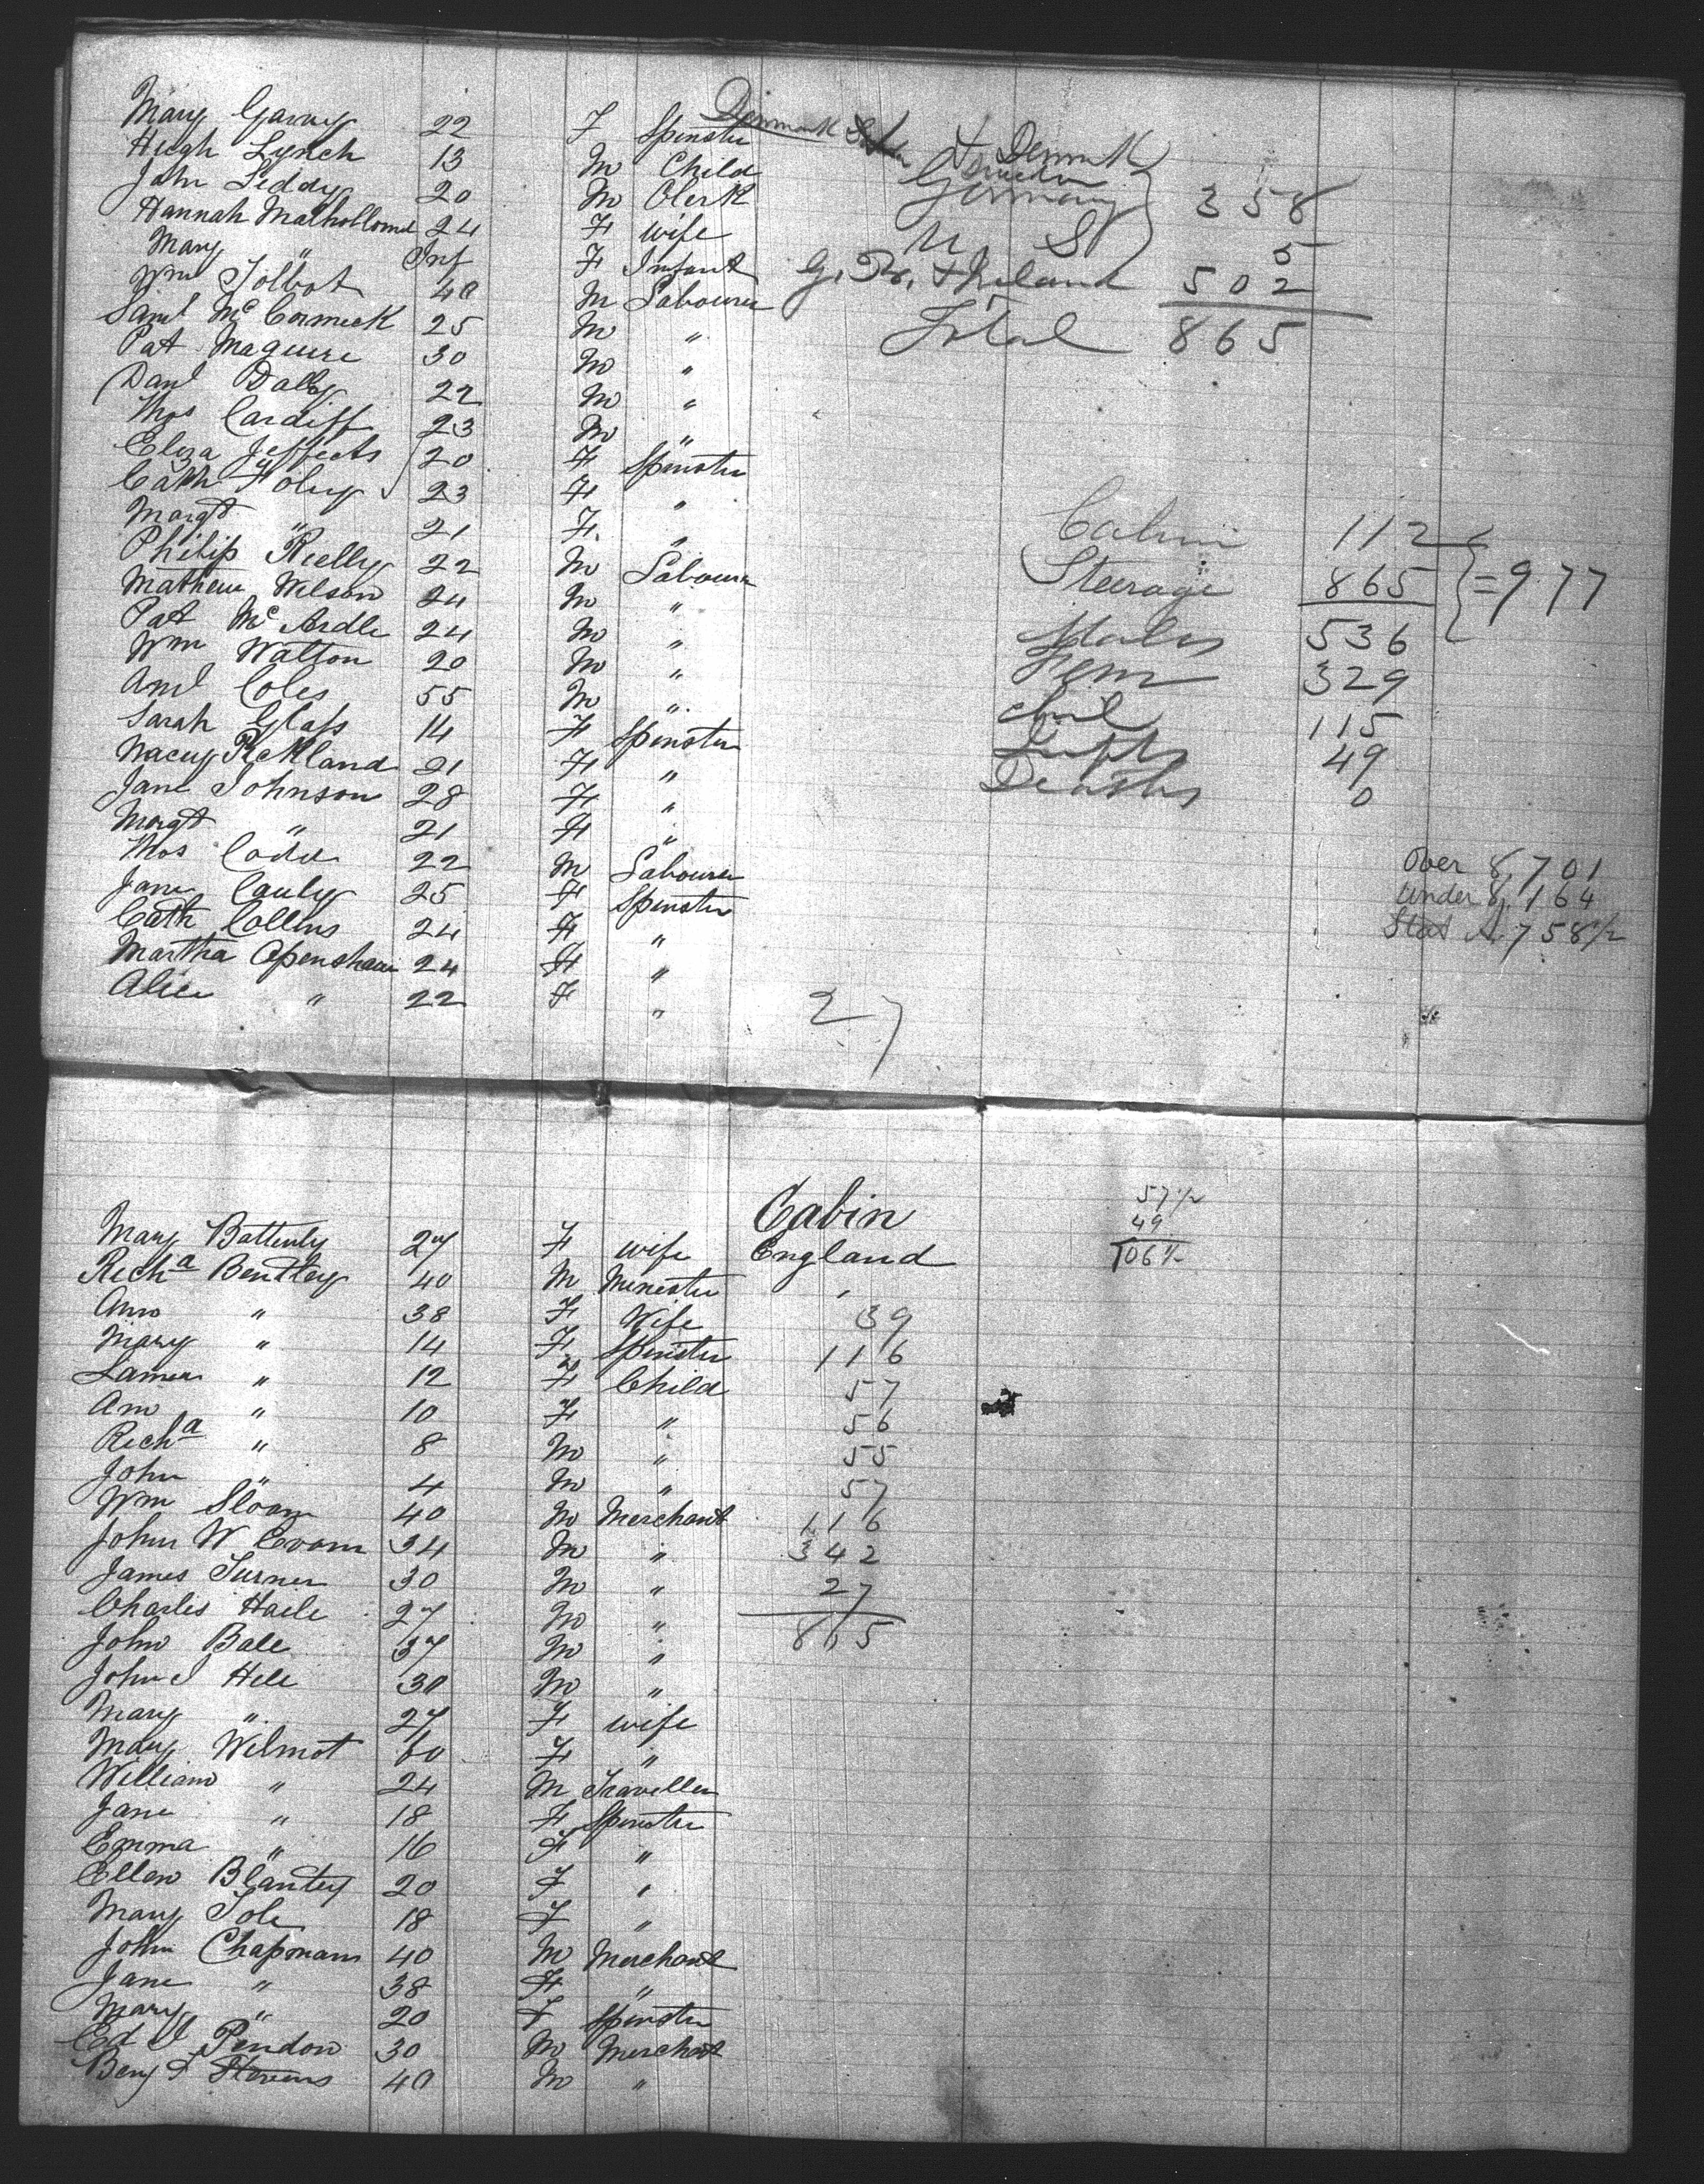 Mary Garvey 22 F Spinster Denmark & Denmark
Hugh Lynch 13 M Child Sweden
John Leddy 20 M Clerk Germany 358
Hannah Mulholland 24 F wife U S 5
Mary " Inf F Infant G. Br. & Ireland 502
Wm Tolbot 40 M Labourer Total 865
Saml McCormick 25 M "
Pat Maguire 30 M "
Danl Dalby 22 M "
Thos Cardiff 23 M "
Eliza Jeffects 20 F Spinster
Cath Foley 23 F "
Margt " 21 F " Cabin 112
Philip Rielly 22 M Labourer Steerage 865 = 977
Mathew Wilson 24 M "
Pat McArdle 24 M " Males 536
Wm Walton 20 M " Fem 329
Saml Coles 55 M " Chil 115
Sarah Glass 14 F Spinster Infts 49
Nacey Pickland 21 F " Deaths 0
Jane Johnson 28 F "
Margt " 21 F "
Thos Codd 22 M Labourer Over 8, 701
Jane Cauly 25 F Spinster Under 8, 164
Cath Collins 24 F " Stat A. 758 1/2
Martha Openshaw 24 F "
Alice " 22 F " 27
Cabin 57 1/2
49
Mary Battenly 27 F wife England 106 1/2
Richd Bentley 40 M Minister "
Ann " 38 F Wife 39
Mary " 14 F Spinster 116
" 12 F Child 57
Ann " 10 F " 56
Richd " 8 M " 55
John " 4 M " 57
Wm Sloan 40 M Merchant 116
John W Evans 34 M " 342
James Turner 30 M " 27
Charles Haile 27 M " 865
John Bale 37 M "
John J Hele 30 M "
Mary " 27 F wife
Mary Wilmot 60 F "
William " 24 M Traveller
Jane " 18 F Spinster
Emma " 16 F "
Ellen Blantey 20 F "
Mary Tole 18 F "
John Chapman 40 M Merchant
Jane " 38 F "
Mary " 20 F Spinster
Ed J Pendon 30 M Merchant
Benj F Stevens 40 M "